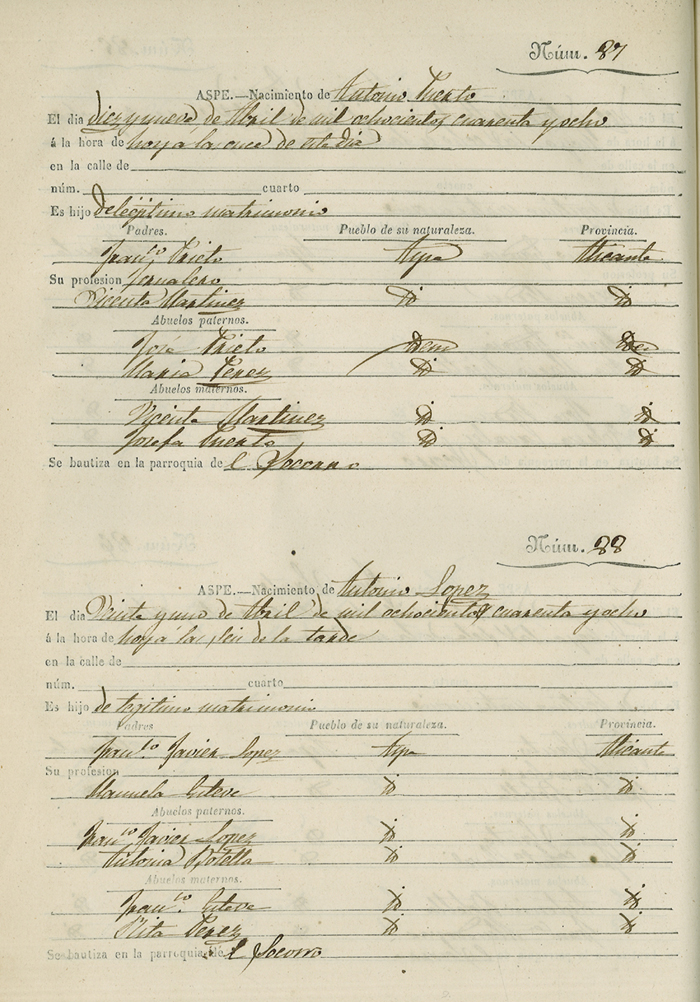 Núm. 87
ASPE.—Nacimiento de Antonio Prieto
El dia diez y nueve de Abril de mil ochocientos cuarenta y ocho
á la hora de hoy a la once de este dia
en la calle de
núm. cuarto
Es hijo de legitimo matrimonio
Padres. Pueblo de su naturaleza. Provincia.
Franco. Prieto Aspe Alicante
Su profesion Jornalero
Vicenta Martinez id id
Abuelos paternos.
José Prieto idem idem
Maria Perez id id
Abuelos maternos.
Vicente Martinez id id
Josefa Puerto id id
Se bautiza en la parroquia de el Socorro
Núm. 88
ASPE.—Nacimiento de Antonio Lopez
El dia Veinte y uno de Abril de mil ochocientos cuarenta y ocho
á la hora de hoy a las seis de la tarde
en la calle de
núm. cuarto
Es hijo de legitimo matrimonio
Padres Pueblo de su naturaleza. Provincia.
Franco. Javier Lopez Aspe Alicante
Su profesion
Manuela Esteve id id
Abuelos paternos.
Franco Javier Lopez id id
Antonia Botella id id
Abuelos maternos.
Franco. Esteve id id
Rita Perez id id
Se bautiza en la parroquia de el Socorro